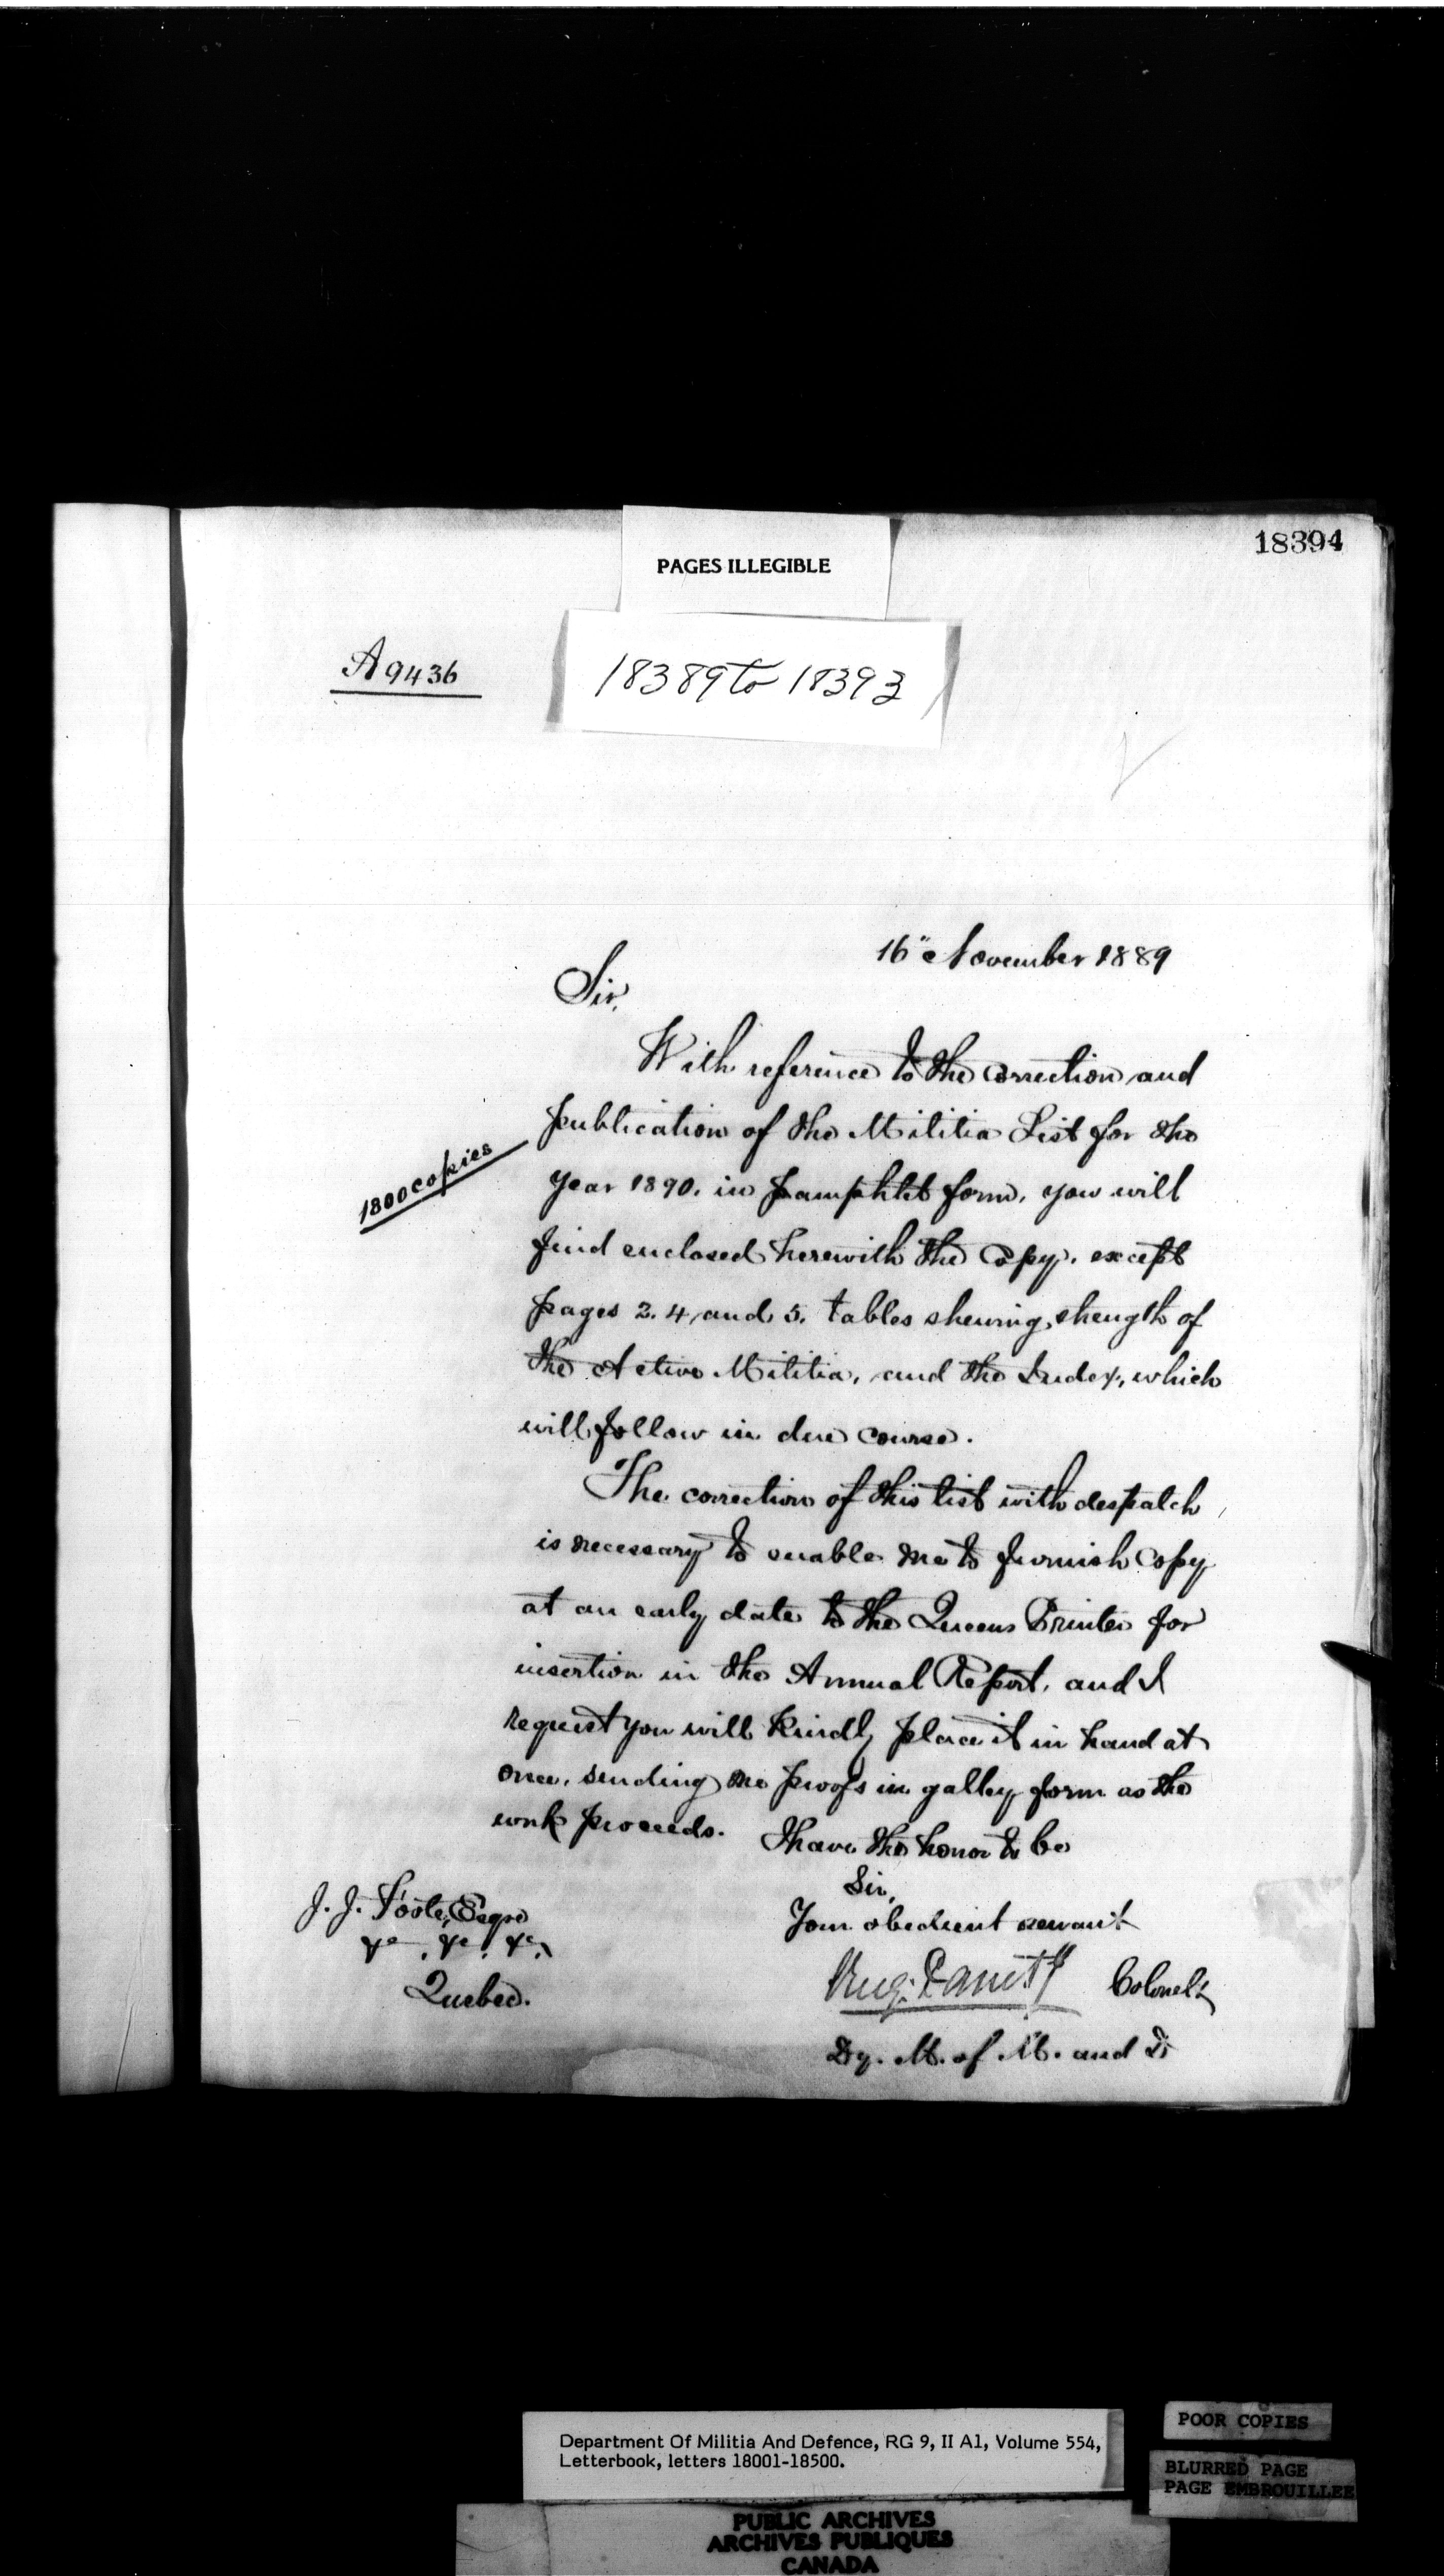 18394
PAGES ILLEGIBLE
A 9436
18389 to 18393
16" November 1889
Sir,
With reference to the correction and
publication of the Militia List for the
1800 copies
year 1890. in pamphlet form, you will
find enclosed herewith the Copy. except
pages 3. 4 and 5. tables shewing strength of
the Active Militia, and the Index, which
will follow in due course.
The correction of this list with despatch
is necessary to enable me to furnish Copy
at an early date to the Queens Printer for
insertion in the Annual Report, and I
request you will kindly place it in hand at
once, sending me proofs in galley form as the
work proceeds.
I have the honor to be
Sir,
Your obedient servant
J. J. Foote, Esqre
&c. &c. &c.
Quebec.
Colonel,
Dy. M. of M. and D.
Department Of Militia And Defence, RG 9, II A1, Volume 554,
Letterbook, letters 18001-18500.
POOR COPIES
BLURRED PAGE
PAGE EMBROUILLEE
PUBLIC ARCHIVES
ARCHIVES PUBLIQUES
CANADA